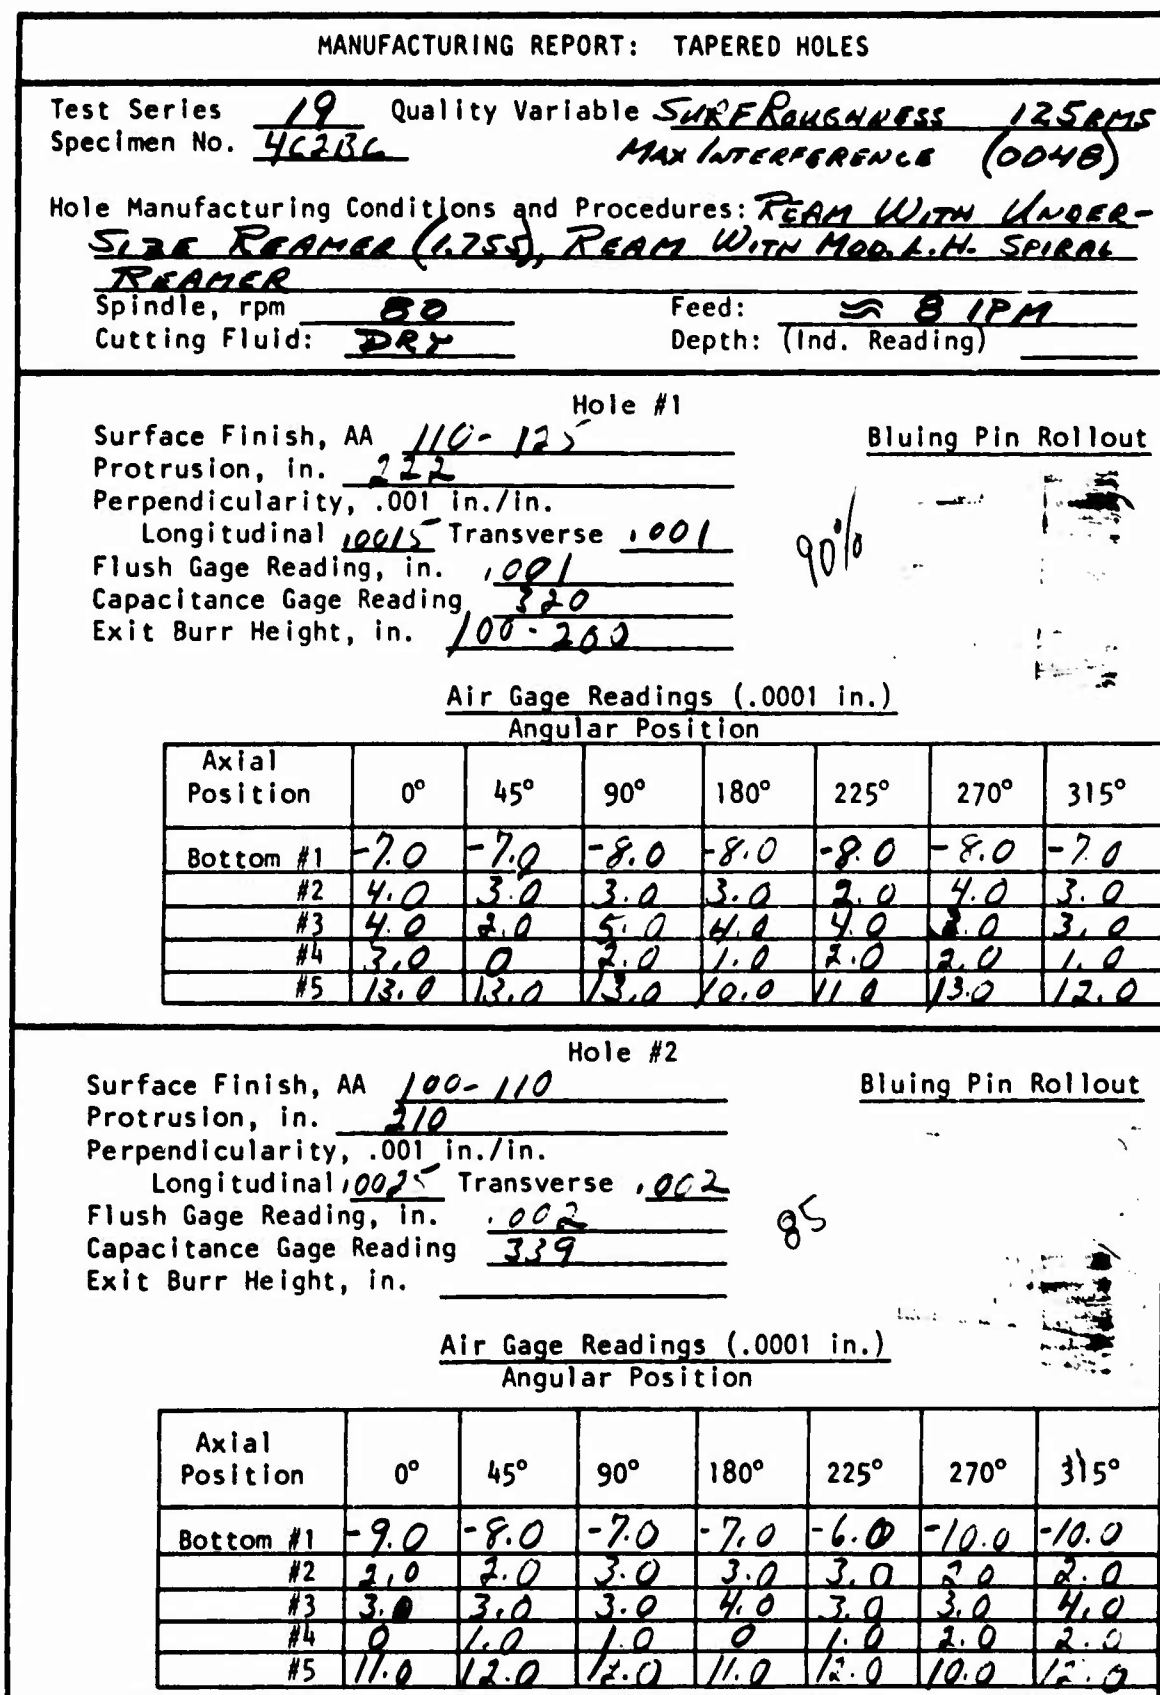 MANUFACTURING REPORT: TAPERED HOLES
Test Series 19 Quality Variable SURF ROUGHNESS 125 RMS
Specimen No. 4C2BC MAX INTERFERENCE (0048)
Hole Manufacturing Conditions and Procedures: REAM WITH UNDER-
SIZE REAMER (1.755), REAM WITH MOD. L.H. SPIRAL
REAMER
Spindle, rpm 80 Feed: ≈ 8 IPM
Cutting Fluid: DRY Depth: (Ind. Reading)
Hole #1
Surface Finish, AA 110-125 Bluing Pin Rollout
Protrusion, in. 222
Perpendicularity, .001 in./in.
Longitudinal .0015 Transverse .001
90%
Flush Gage Reading, in. .001
Capacitance Gage Reading 320
Exit Burr Height, in. 100-200
Air Gage Readings (.0001 in.)
Angular Position
Axial
Position 0° 45° 90° 180° 225° 270° 315°
Bottom #1 -7.0 -7.0 -8.0 -8.0 -8.0 -8.0 -7.0
#2 4.0 3.0 3.0 3.0 2.0 4.0 3.0
#3 4.0 2.0 5.0 4.0 4.0 3.0
#4 3.0 0 2.0 1.0 2.0 2.0 1.0
#5 13.0 13.0 13.0 10.0 11.0 13.0 12.0
Hole #2
Surface Finish, AA 100-110 Bluing Pin Rollout
Protrusion, in. 210
Perpendicularity, .001 in./in.
Longitudinal .0025 Transverse .002
Flush Gage Reading, in. .002 85
Capacitance Gage Reading 339
Exit Burr Height, in.
Air Gage Readings (.0001 in.)
Angular Position
Axial
Position 0° 45° 90° 180° 225° 270° 315°
Bottom #1 -9.0 -8.0 -7.0 -7.0 -6.0 -10.0 -10.0
#2 2.0 2.0 3.0 3.0 3.0 2.0 2.0
#3 3.0 3.0 3.0 4.0 3.0 3.0 4.0
#4 0 1.0 1.0 0 1.0 2.0 2.0
#5 11.0 12.0 12.0 11.0 12.0 10.0 12.0